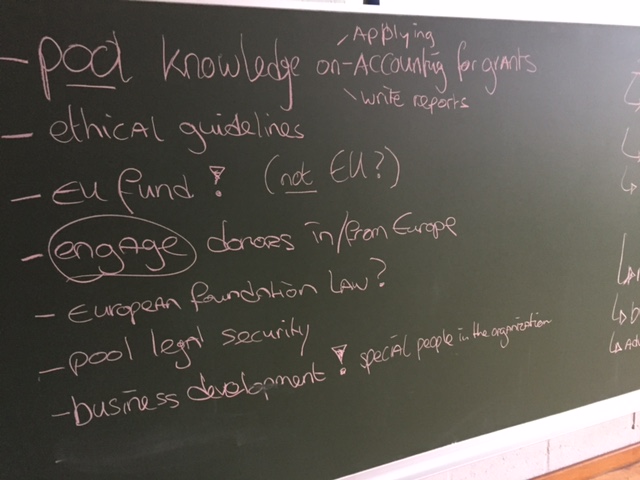 Applying
- pool knowledge on - Accounting for grants
write reports
- ethical guidelines
- EU fund ! (not EU?)
- engage donors in/from Europe
- European foundation law?
- pool legal security
- business development ! special people in the organization